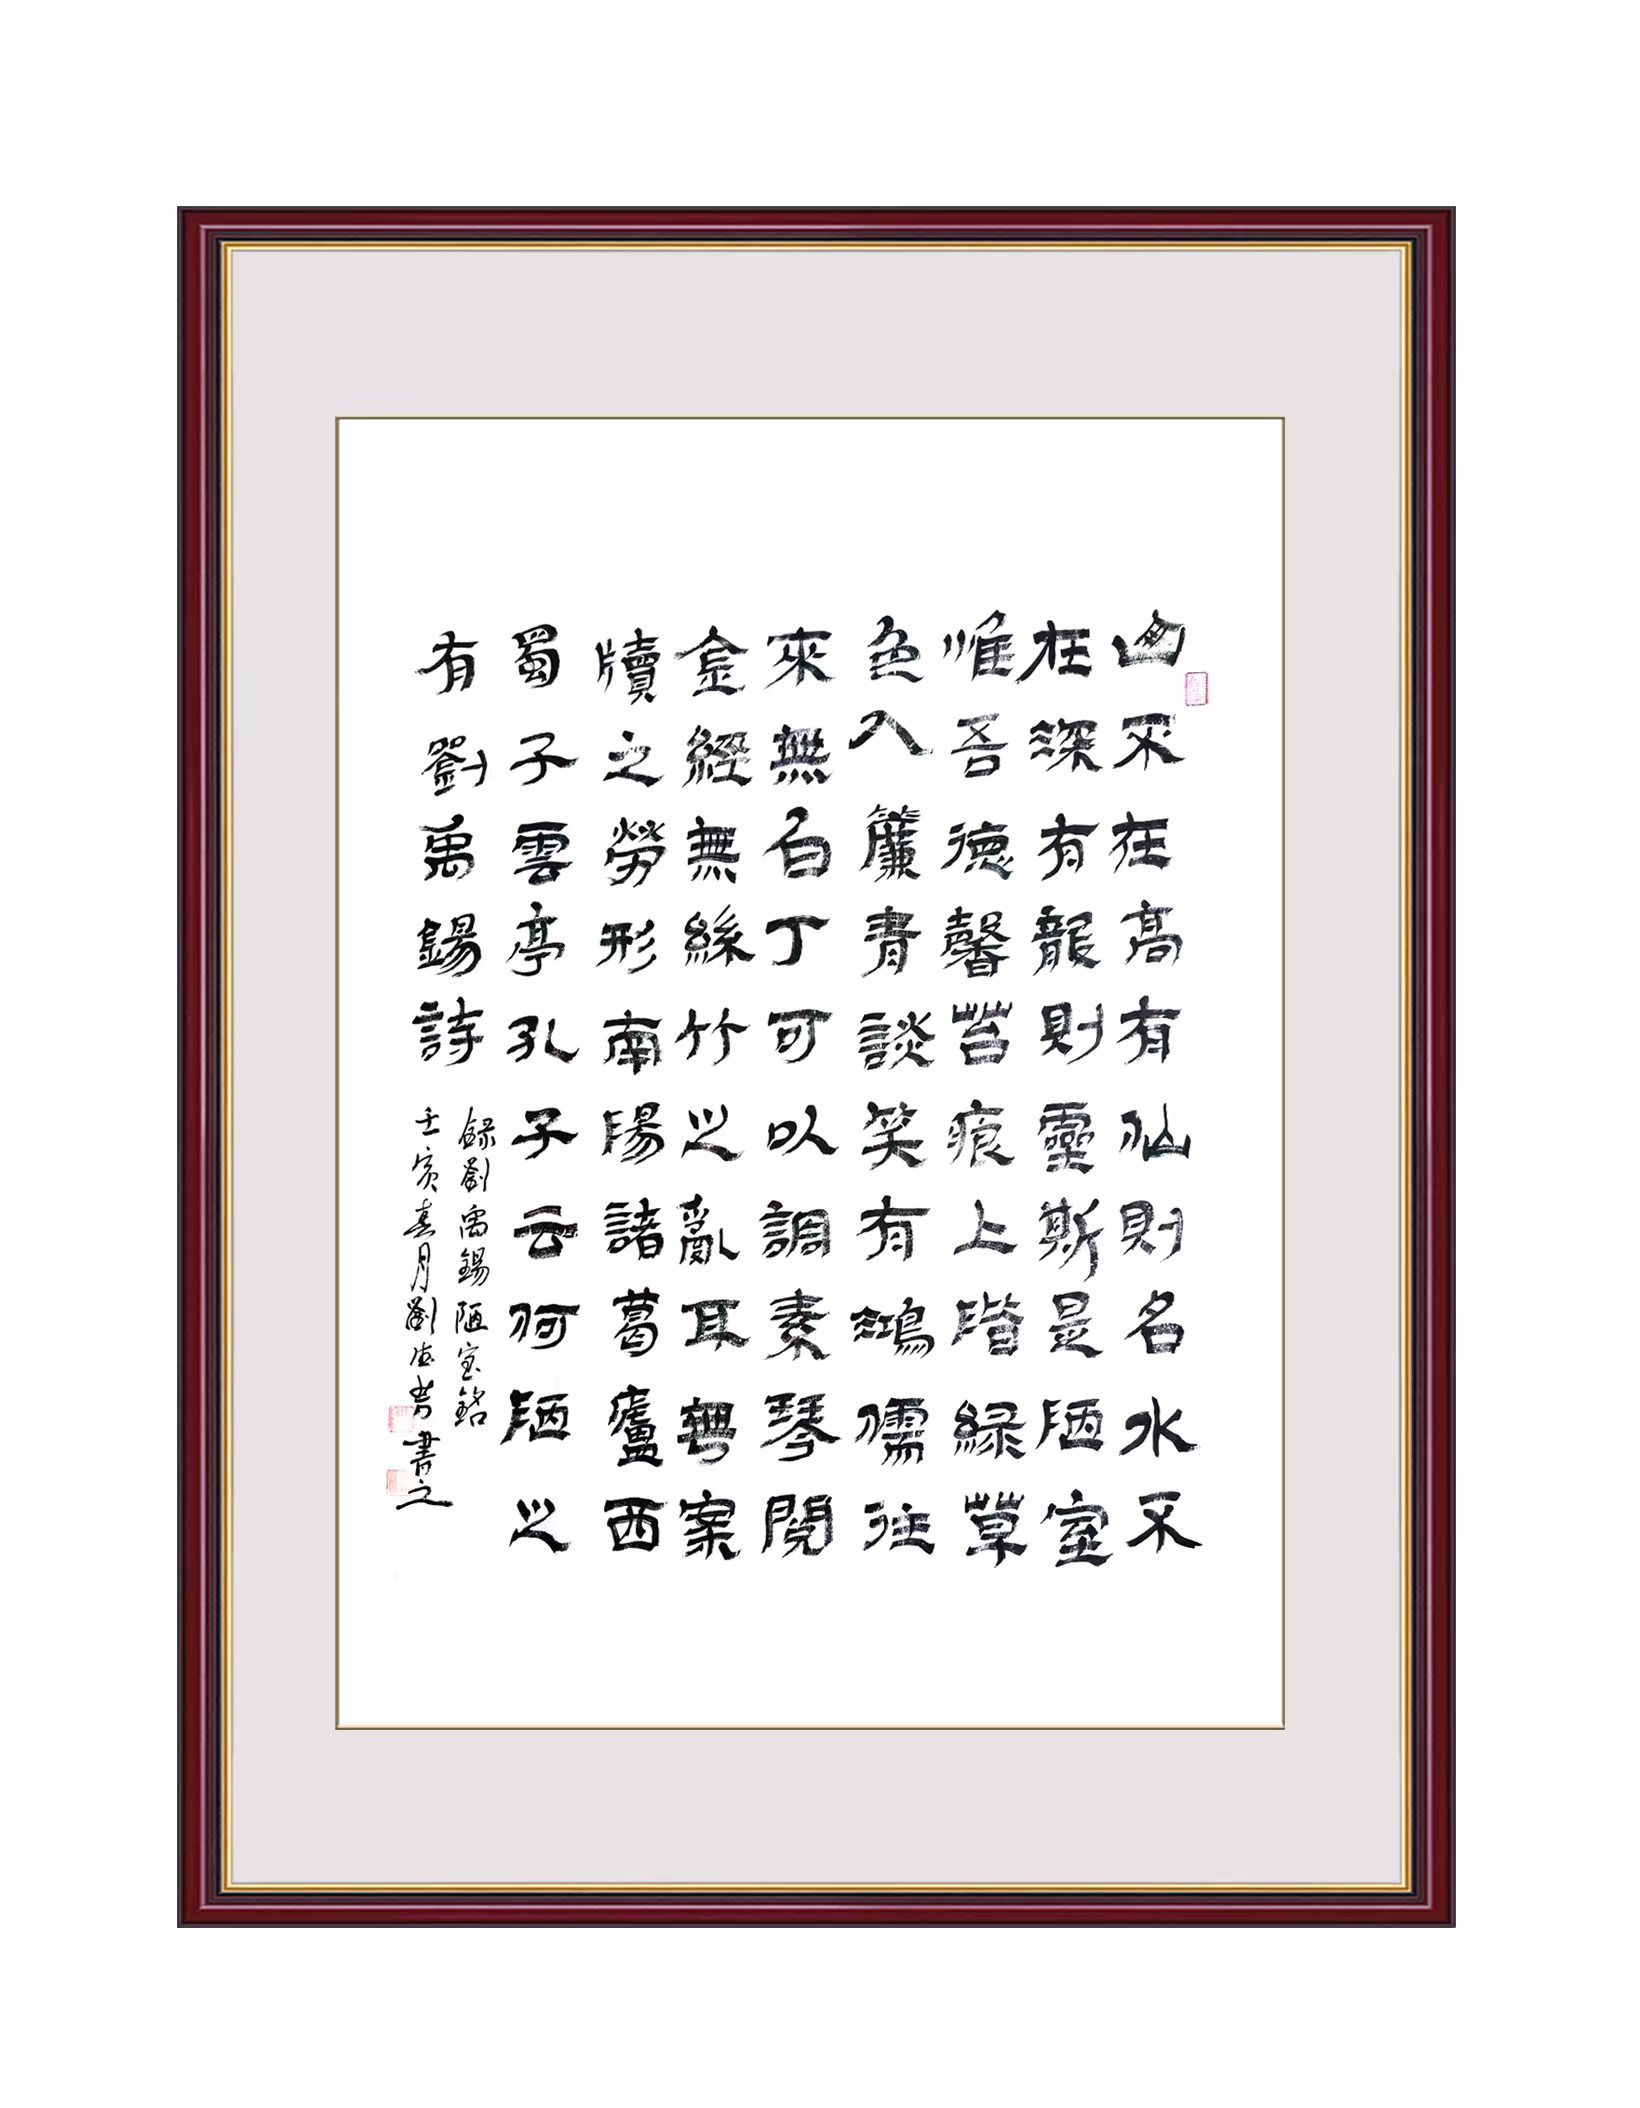 山不在高有仙則名水不
在深有龍則靈斯是陋室
惟吾德馨苔痕上階綠草
色入簾青談笑有鴻儒往
來無白丁可以調素琴閱
金經無絲竹之亂耳無案
牘之勞形南陽諸葛廬西
蜀子雲亭孔子云何陋之
有劉禹錫詩
錄劉禹錫陋室銘
壬寅春月劉書之